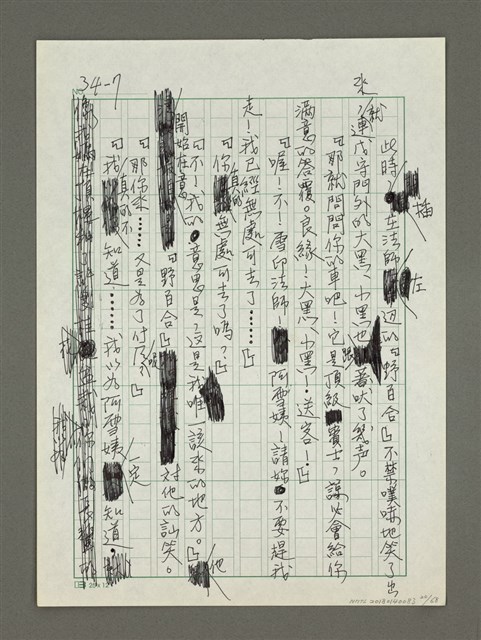 34-7
此時,插在法師左邊的「野百合」不禁噗哧地笑了出
來,就連戍守門外的大黑、小黑也跟著吠了幾声。
「那就問問你的車吧!它是頂級賓士,諒必會給你
滿意的答覆。良緣!大黑、小黑!送客!」
「喔!不!雪印法師!阿雪姨!請妳不要趕我
走!我已經無處可去了……」
「你真的無處可去了嗎?」
「不!我的意思是,這是我唯一該來的地方。」他
開始在意「野百合」對他的訕笑。
「那你來……又是為了什麼?」
「我真的不知道……我以為阿雪姨一定知道。